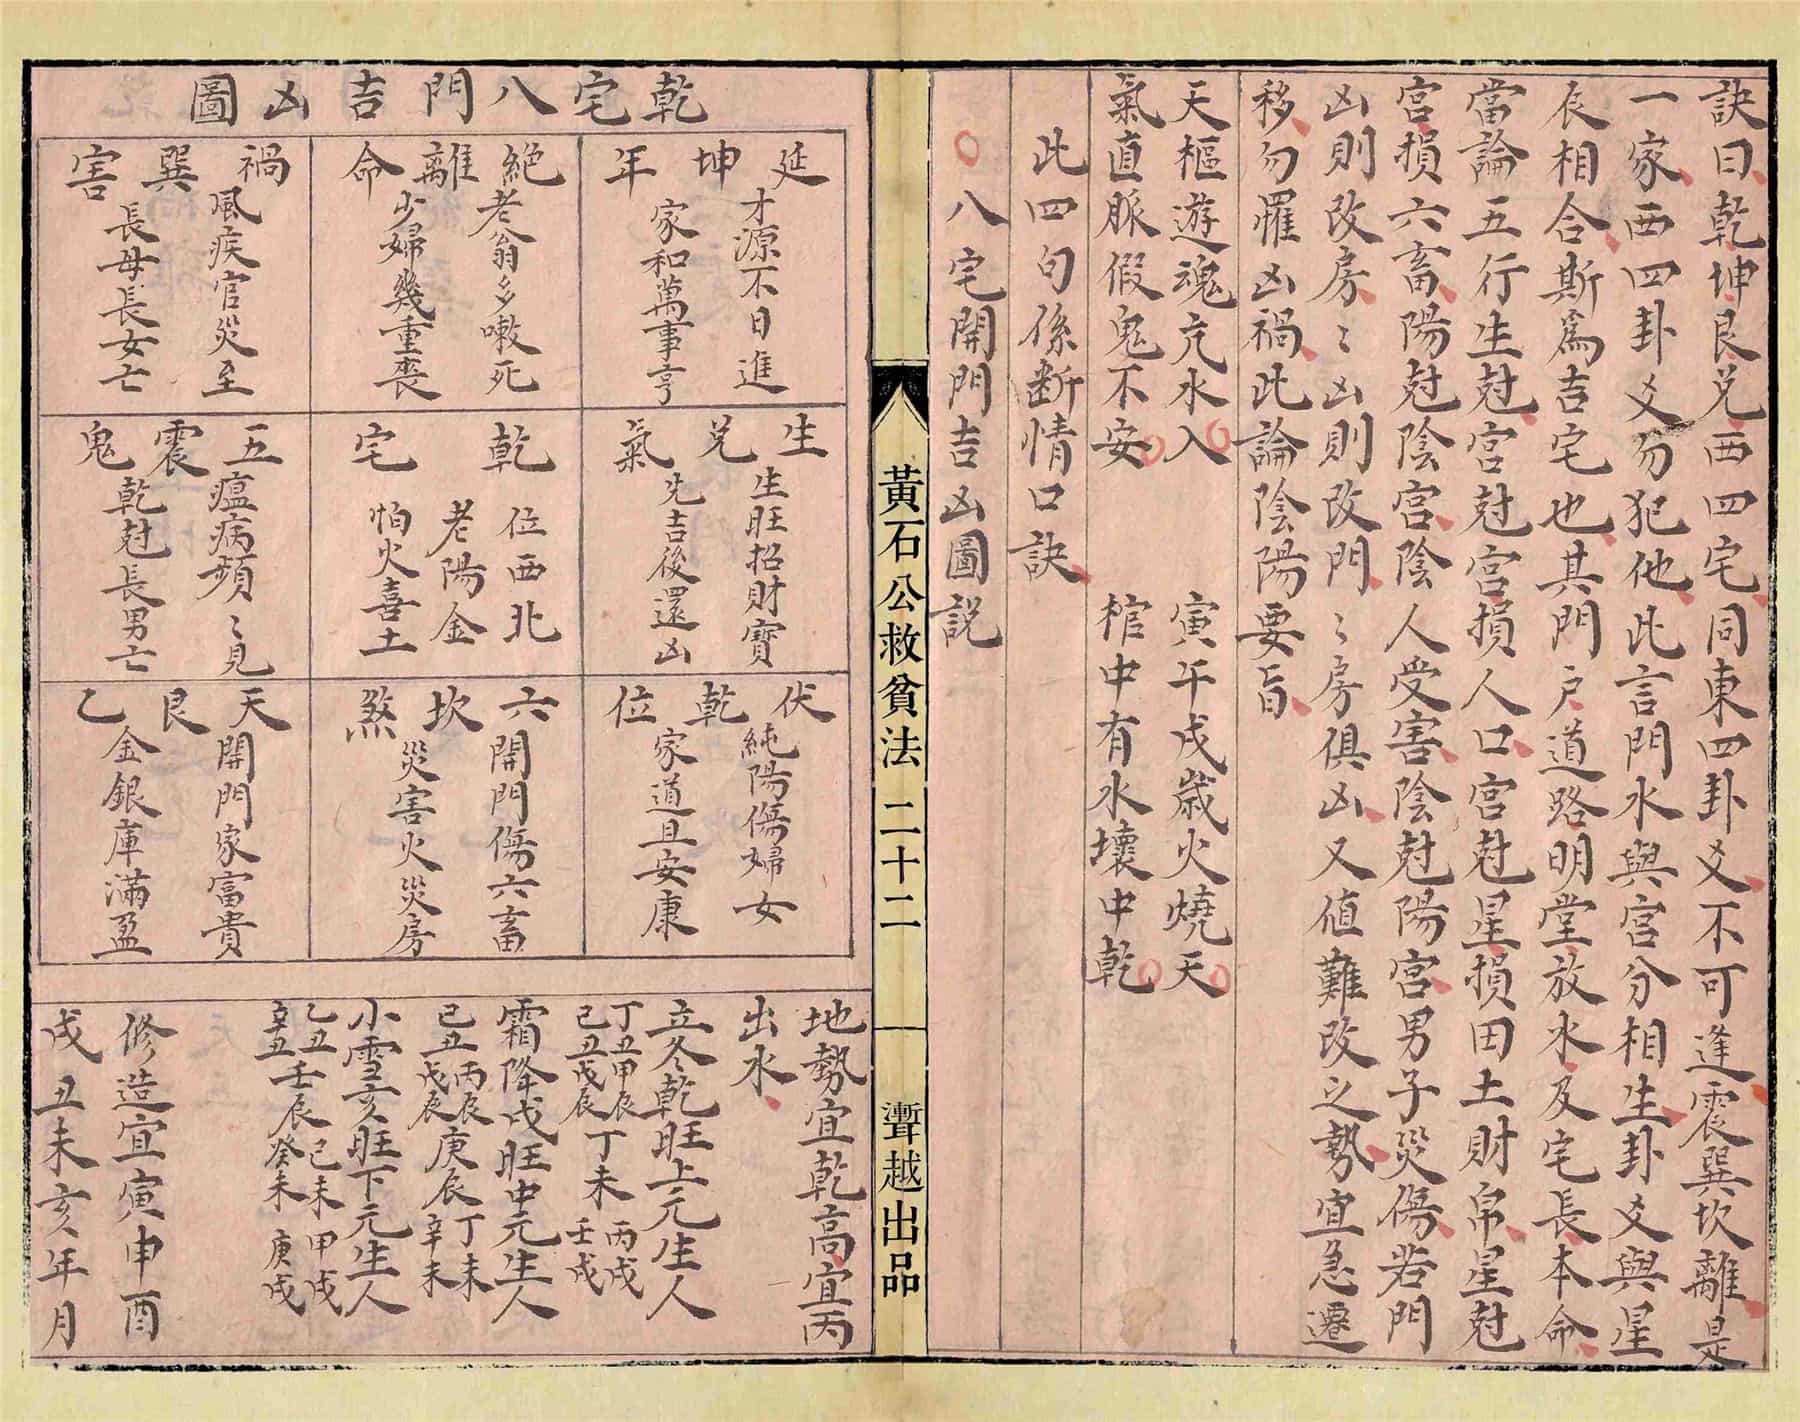 訣曰乾坤艮兑西四宅同東四卦爻不可逢震巽坎離是
一家西四卦爻勿犯他此言門水與宫分相生卦爻與星
辰相合斯為吉宅也其門户道路明堂放水及宅長本命
當論五行生尅宫尅宫損人口宫尅星損田土財帛星尅
宫損六畜陽尅陰宫陰人受害陰尅陽宫男子災傷若門
凶則改房〻凶則改門〻房俱凶又值難改之勢宜急遷
移勿罹凶禍此論陰陽要旨
天樞遊魂亢水入 寅午戌歲火燒天
氣直脈假鬼不安 棺中有水壞中乾
此四句係断情口訣
八宅開門吉凶圖説
黃石公救貧法 二十二 聻越出品
乾宅八門吉凶圖
延坤年
才源不日進
家和萬事亨
絶離命
老翁多嗽死
少婦幾重喪
禍巽害
風疾官災至
長母長女亡
生兑氣
生旺招財寶
先吉後還凶
乾宅
位西北
老陽金
怕火喜土
五震鬼
瘟病頻〻見
乾尅長男亡
伏乾位
純陽傷婦女
家道且安康
六坎煞
開門傷六畜
災害火災房
天艮乙
開門家富貴
金銀庫滿盈
地勢宜乾高宜丙
出水
立冬乾旺上元生人
丁丑甲辰丁未丙戌
己丑戊辰壬戌
霜降戌旺中元生人
丙辰庚辰丁未
己丑戊辰辛未
小雪亥旺下元生人
乙丑壬辰己未甲戌
辛丑癸未庚戌
修造宜寅申酉
戌丑未亥年月